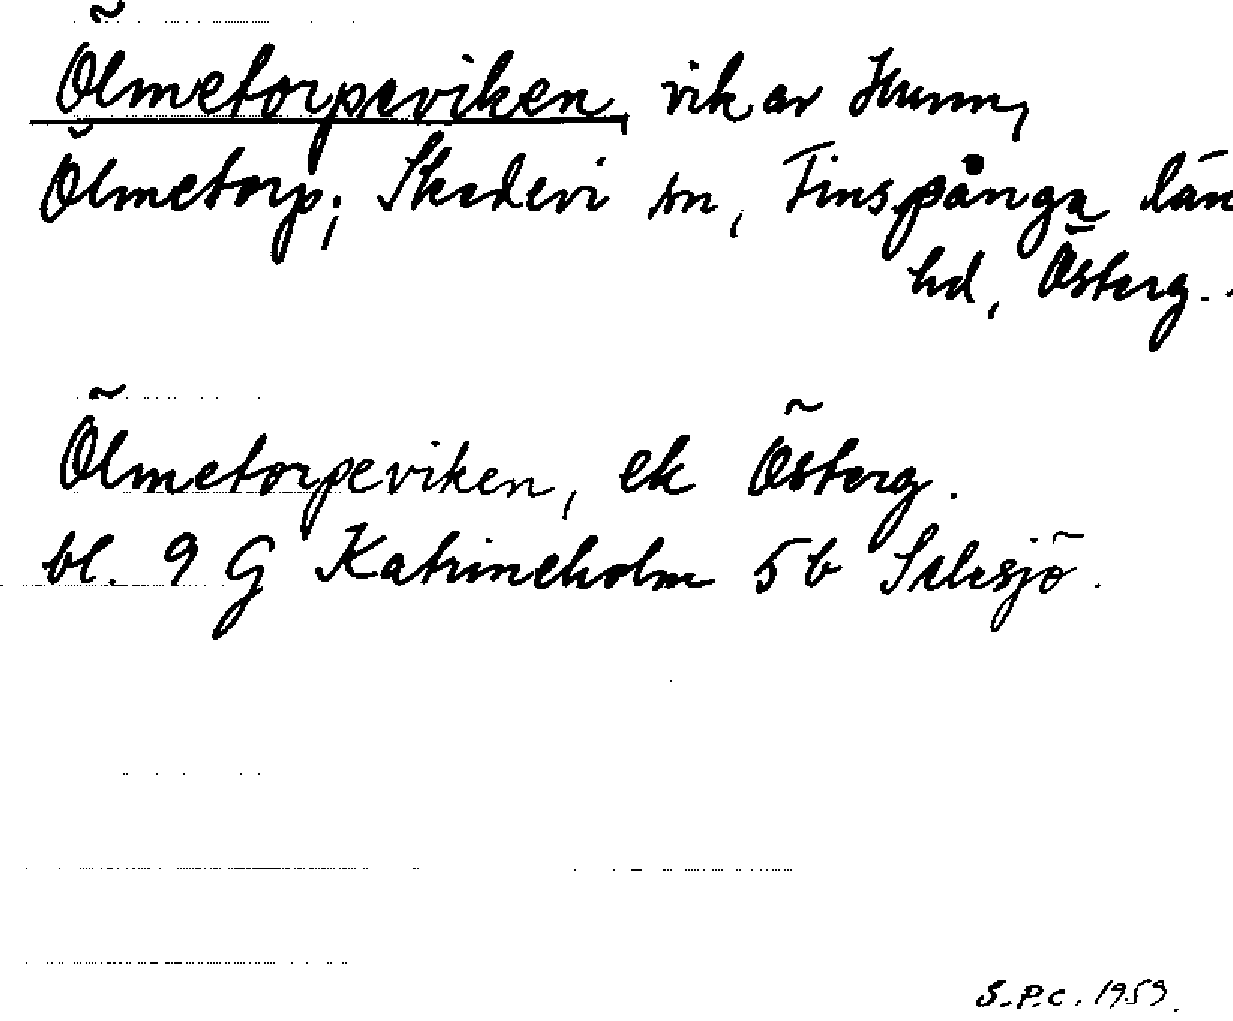 Ölmetorpeviken, vik av Hunn,
Ölmetorp; Skedevi sn, Finspånga län
hd, Österg.
Ölmetorpeviken, ek Österg.
bl. 9 G Katrineholm 5b
S.P.C. 1959.